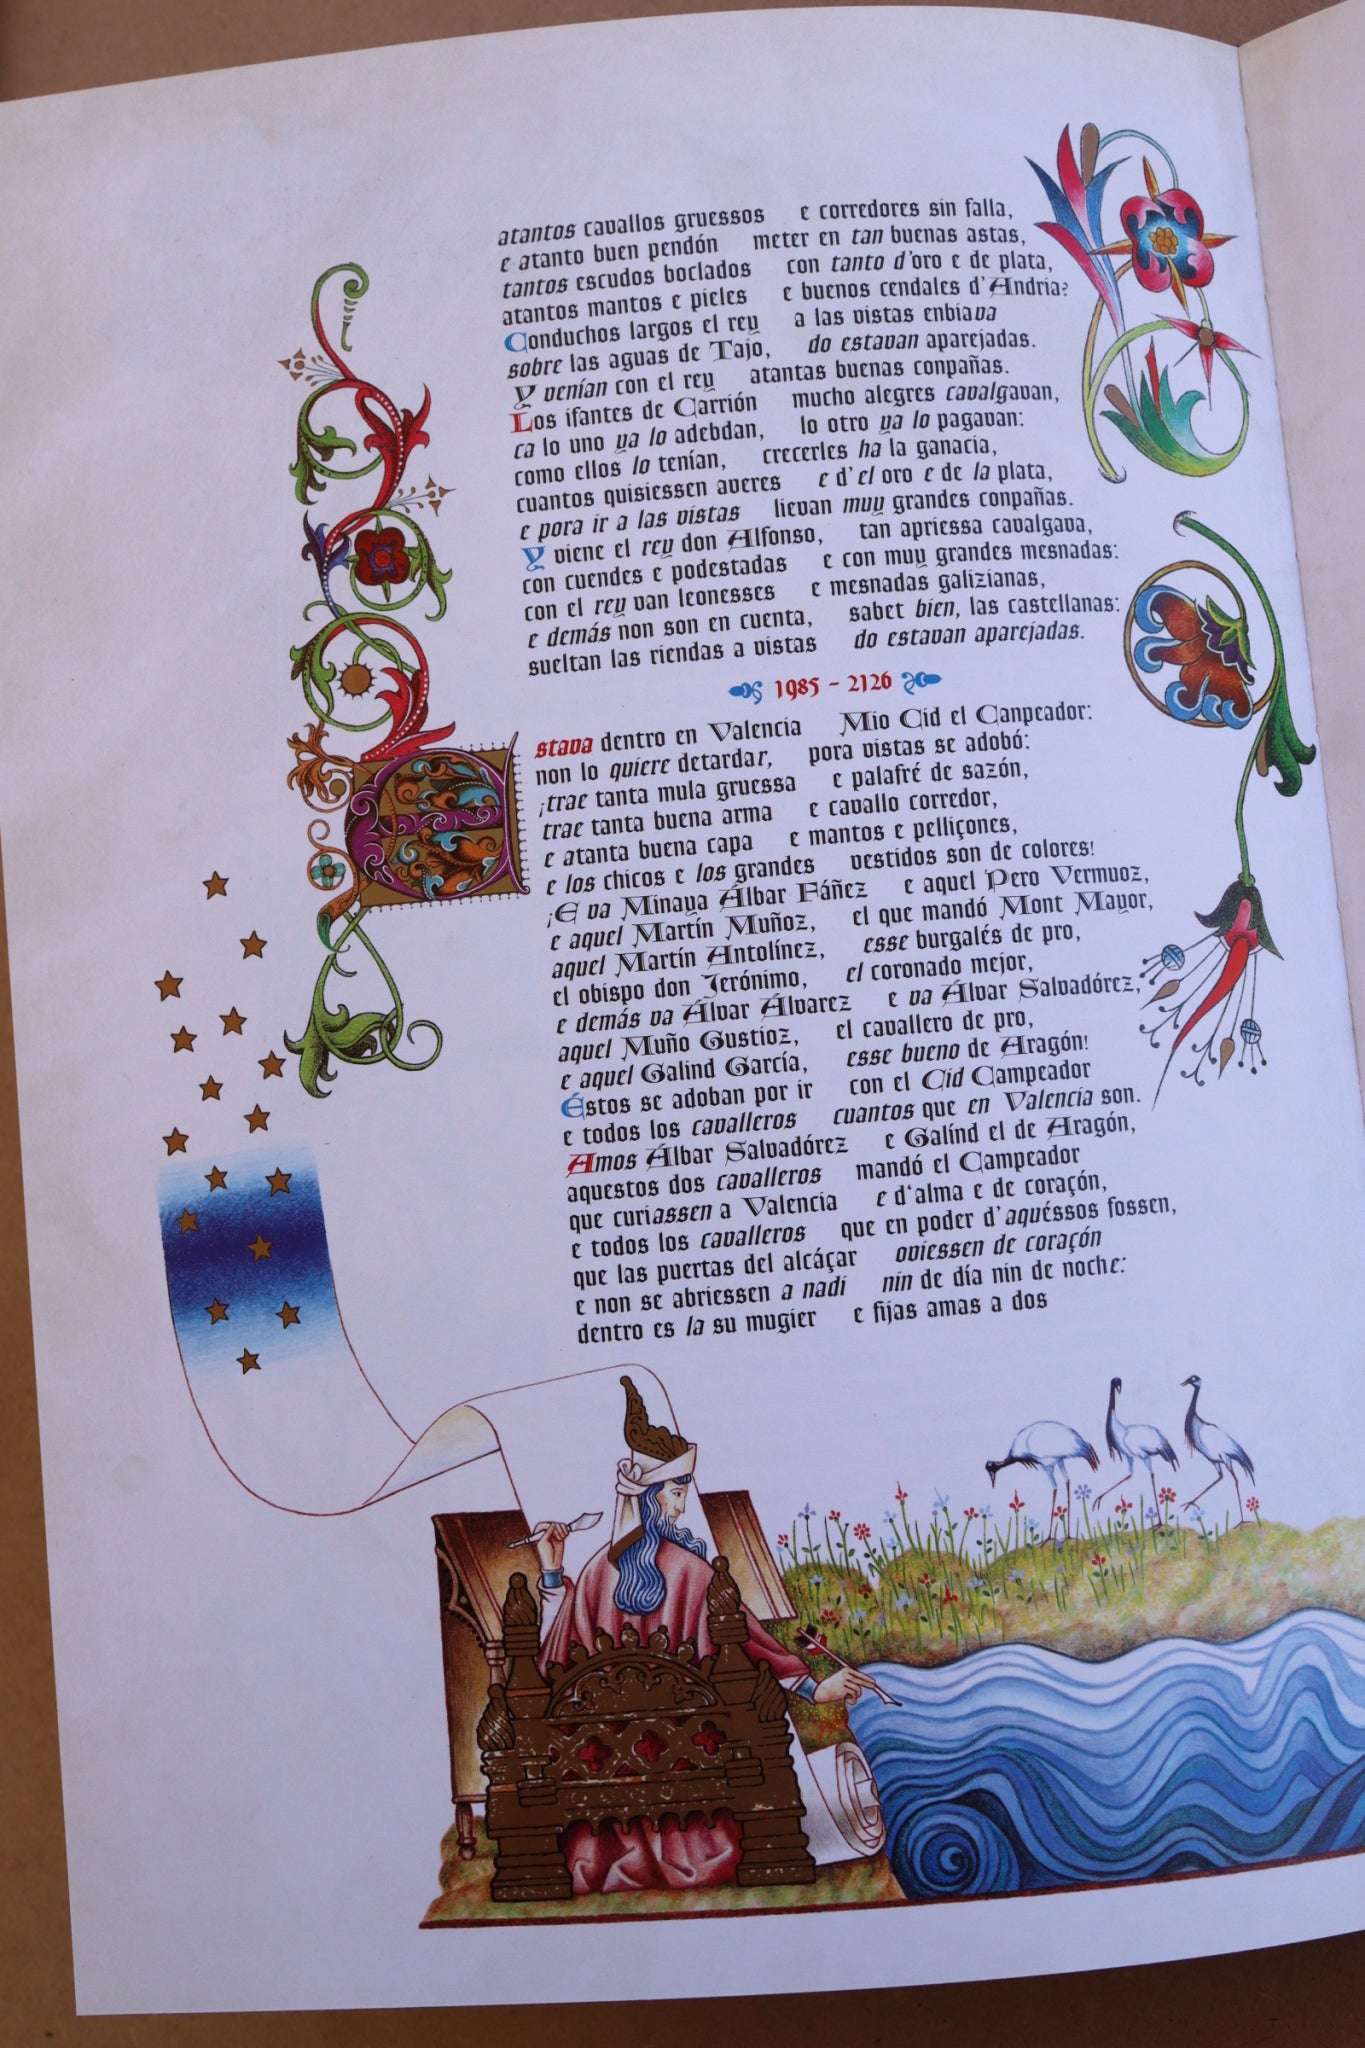 atantos cavallos gruessos e corredores sin falla,
e atanto buen pendón meter en tan buenas astas,
tantos escudos boclados con tanto d'oro e de plata,
atantos mantos e pieles e buenos cendales d'Andria?
Conduchos largos el rey a las vistas enbiava
sobre las aguas de Tajo, do estavan aparejadas.
Y venían con el rey atantas buenas conpañas.
Los ifantes de Carrión mucho alegres cavalgavan,
ca lo uno ya lo adebdan, lo otro ya lo pagavan:
como ellos lo tenían, crecerles ha la ganacia,
cuantos quisiessen averes e d'el oro e de la plata,
e pora ir a las vistas lievan muy grandes conpañas.
Y viene el rey don Alfonso, tan apriessa cavalgava,
con cuendes e podestadas e con muy grandes mesnadas:
con el rey van leonesses e mesnadas galizianas,
e demás non son en cuenta, sabet bien, las castellanas:
sueltan las riendas a vistas do estavan aparejadas.
1985 - 2126
Estava dentro en Valencia Mio Cid el Canpeador:
non lo quiere detardar, pora vistas se adobó:
¡trae tanta mula gruessa e palafré de sazón,
trae tanta buena arma e cavallo corredor,
e atanta buena capa e mantos e pelliçones,
e los chicos e los grandes vestidos son de colores!
¡E va Minaya Álbar Fáñez e aquel Pero Vermuoz,
e aquel Martín Muñoz, el que mandó Mont Mayor,
aquel Martín Antolínez, esse burgalés de pro,
el obispo don Jerónimo, el coronado mejor,
e demás va Álvar Álvarez e va Álvar Salvadórez,
aquel Muño Gustioz, el cavallero de pro,
e aquel Galind García, esse bueno de Aragón!
Éstos se adoban por ir con el Cid Campeador
e todos los cavalleros cuantos que en Valencia son.
Amos Álbar Salvadórez e Galínd el de Aragón,
aquestos dos cavalleros mandó el Campeador
que curiassen a Valencia e d'alma e de coraçón,
e todos los cavalleros que en poder d'aquéssos fossen,
que las puertas del alcáçar oviessen de coraçón
e non se abriessen a nadi nin de día nin de noche:
dentro es la su mugier e fijas amas a dos